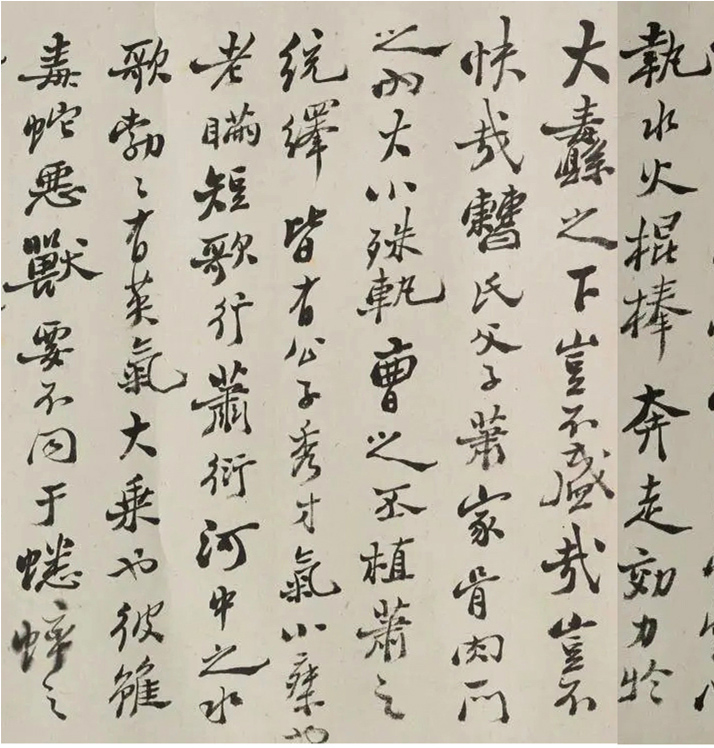 執水火棍棒奔走効力於
大纛之下豈不盛哉豈不
快哉曹氏父子蕭家骨肉一門
之內大小殊軌曹之丕植蕭之
統繹皆有公子秀才氣小乘也
老瞞短歌行蕭衍河中之水
歌勃々有英氣大乘也彼雖
毒蛇惡獸要不同于蟋蟀之